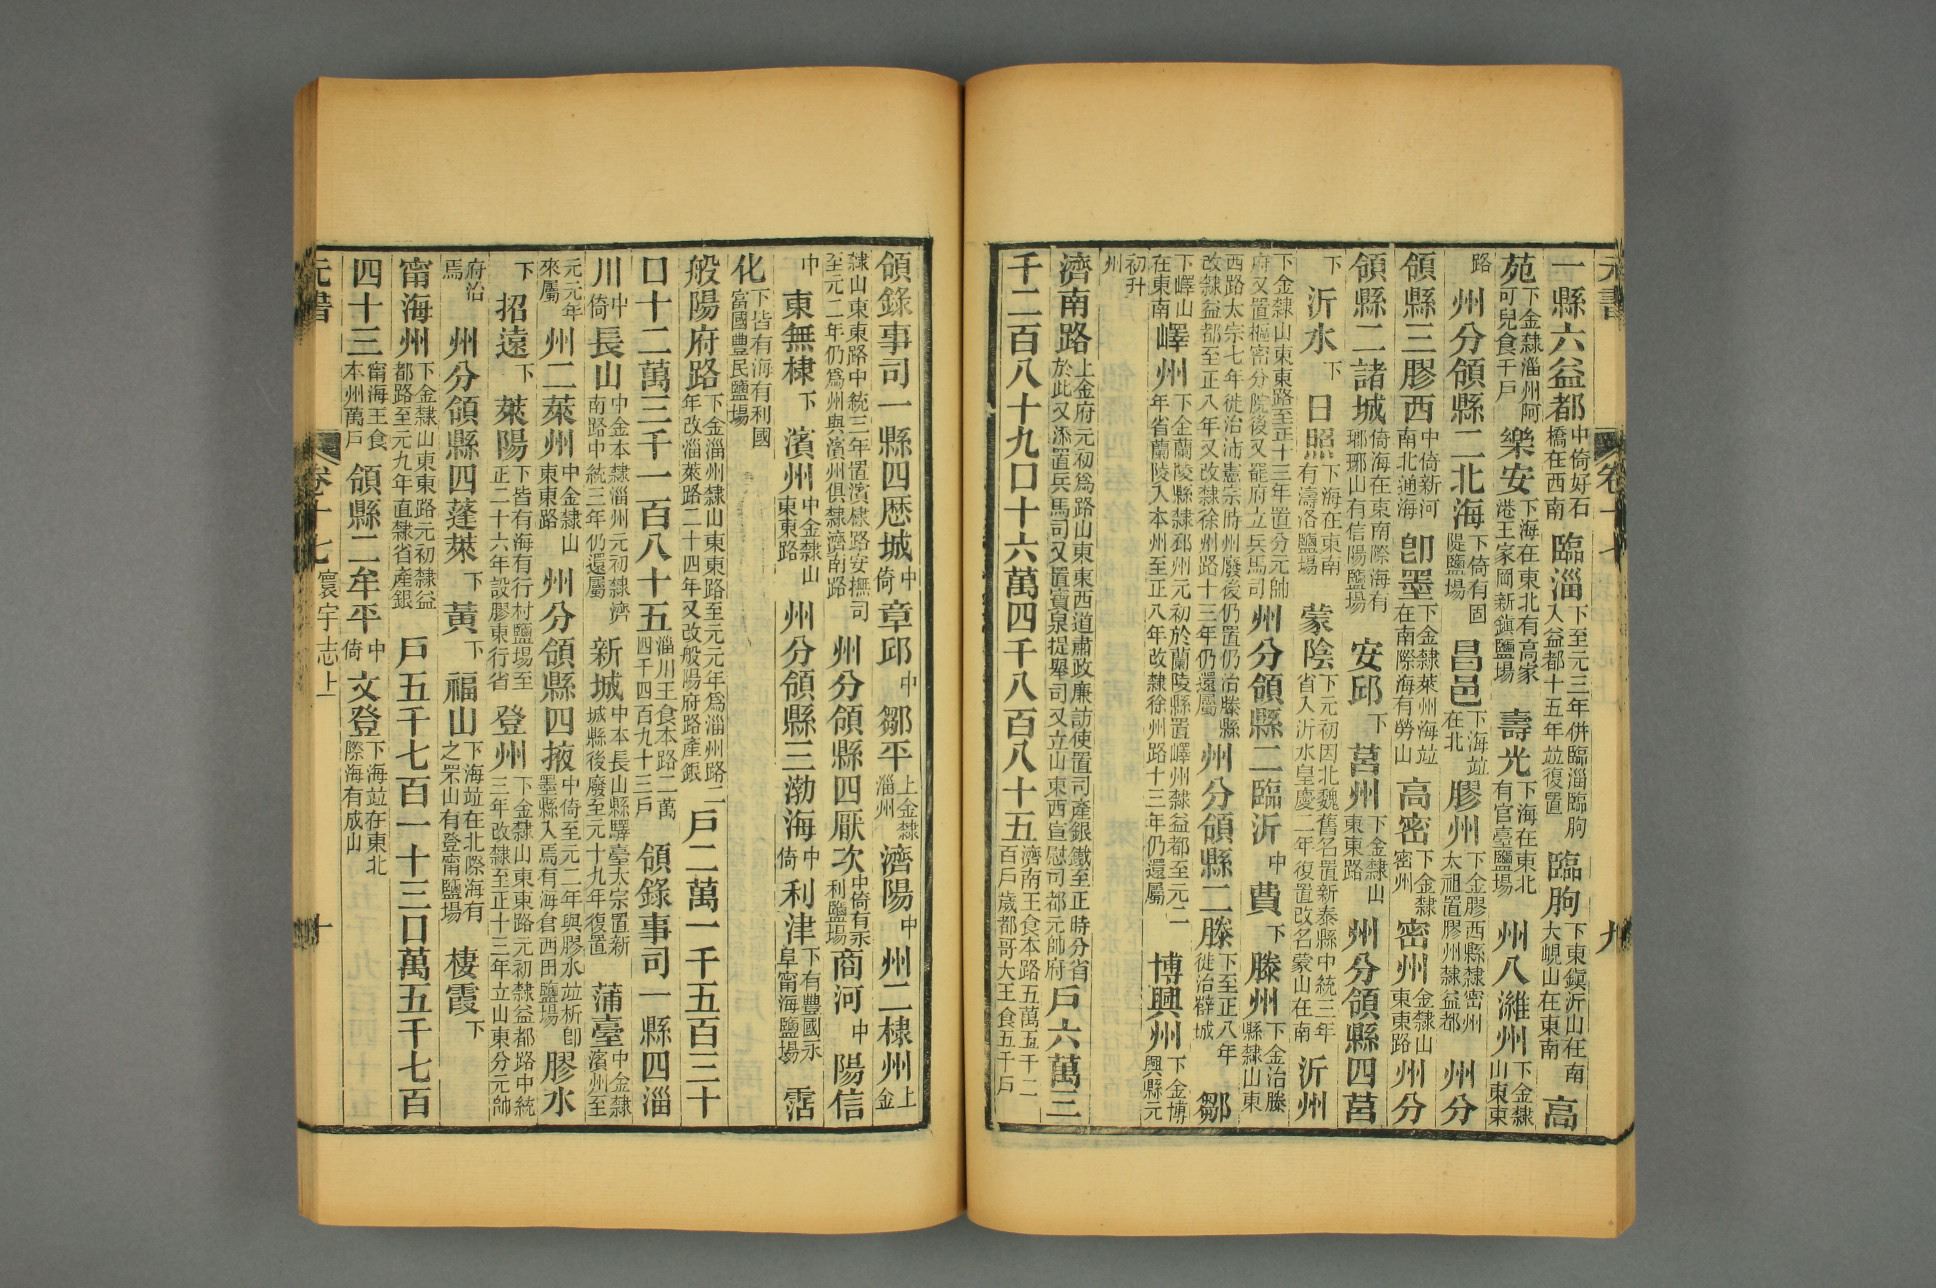 元書 卷十七 九
一縣六益都中倚好石橋在西南臨淄下至元三年併臨淄臨朐入益都十五年竝復置臨朐下東鎮沂山在南大峴山在東南高
苑下金隸淄州阿可兒食千戶樂安下海在東北有高家港王家岡新鎮鹽場壽光下海在東北有官臺鹽場州八濰州下金隸山東東
路州分領縣二北海下倚有固隄鹽場昌邑下海竝在北膠州下金膠西縣隸密州太祖置膠州隸益都州分
領縣三膠西中倚新河南北通海卽墨下金隸萊州海竝在南際海有勞山高密下金隸密州密州金隸山東東路州分
領縣二諸城倚海在東南際海有瑯琊山有信陽鹽場安邱下莒州下金隸山東東路州分領縣四莒
下沂水下日照下海在東南有濤洛鹽場蒙陰下元初因北魏舊名置新泰縣中統三年省入沂水皇慶二年復置改名蒙山在南沂州
下金隸山東東路至正十三年置分元帥府又置樞密分院後又罷府立兵馬司州分領縣二臨沂中費下滕州下金治滕縣隸山東
西路太宗七年徙治沛憲宗時州廢後仍置仍治滕縣改隸益都至正八年又改隸徐州路十三年仍還屬州分領縣二滕下至正八年徙治薛城鄒
下嶧山在東南嶧州下金蘭陵縣隸邳州元初於蘭陵縣置嶧州隸益都至元二年省蘭陵入本州至正八年改隸徐州路十三年仍還屬博興州下金博興縣元
初升州
濟南路上金府元初爲路山東東西道肅政廉訪使置司產銀鐵至正時分省於此又添置兵馬司又置寶泉提舉司又立山東西宣慰司都元帥府戶六萬三
千二百八十九口十六萬四千八百八十五濟南王食本路五萬五千二百戶歲都哥大王食五千戶
領錄事司一縣四歷城中倚章邱中鄒平上金隸淄州濟陽中州二棣州上金
隸山東東路中統三年置濱棣路安撫司至元二年仍爲州與濱州俱隸濟南路州分領縣四厭次中倚有永利鹽場商河中陽信
中東無棣下濱州中金隸山東東路州分領縣三渤海中倚利津下有豐國永阜甯海鹽場霑
化下皆有海有利國富國豐民鹽場
般陽府路下金淄州隸山東東路至元元年爲淄州路二年改淄萊路二十四年又改般陽府路產銀戶二萬一千五百三十
口十二萬三千一百八十五淄川王食本路二萬四千四百九十三戶領錄事司一縣四淄
川中倚長山中金本隸淄州元初隸濟南路中統三年仍還屬新城中本長山縣驛臺太宗置新城縣後廢至元十九年復置蒲臺中金隸濱州至
元元年來屬州二萊州中金隸山東東路州分領縣四掖中倚至元二年與膠水竝析卽墨縣入焉有海倉西田鹽場膠水
下招遠下萊陽下皆有海有行村鹽場至正二十六年設膠東行省登州下金隸山東東路元初隸益都路中統三年改隸至正十三年立山東分元帥
府治焉州分領縣四蓬萊下黃下福山下海竝在北際海有之罘山有登甯鹽場棲霞下
甯海州下金隸山東東路元初隸益都路至元九年直隸省產銀戶五千七百一十三口萬五千七百
四十三甯海王食本州萬戶領縣二牟平中倚文登下海竝在東北際海有成山
元書 卷十七 寰宇志上 十